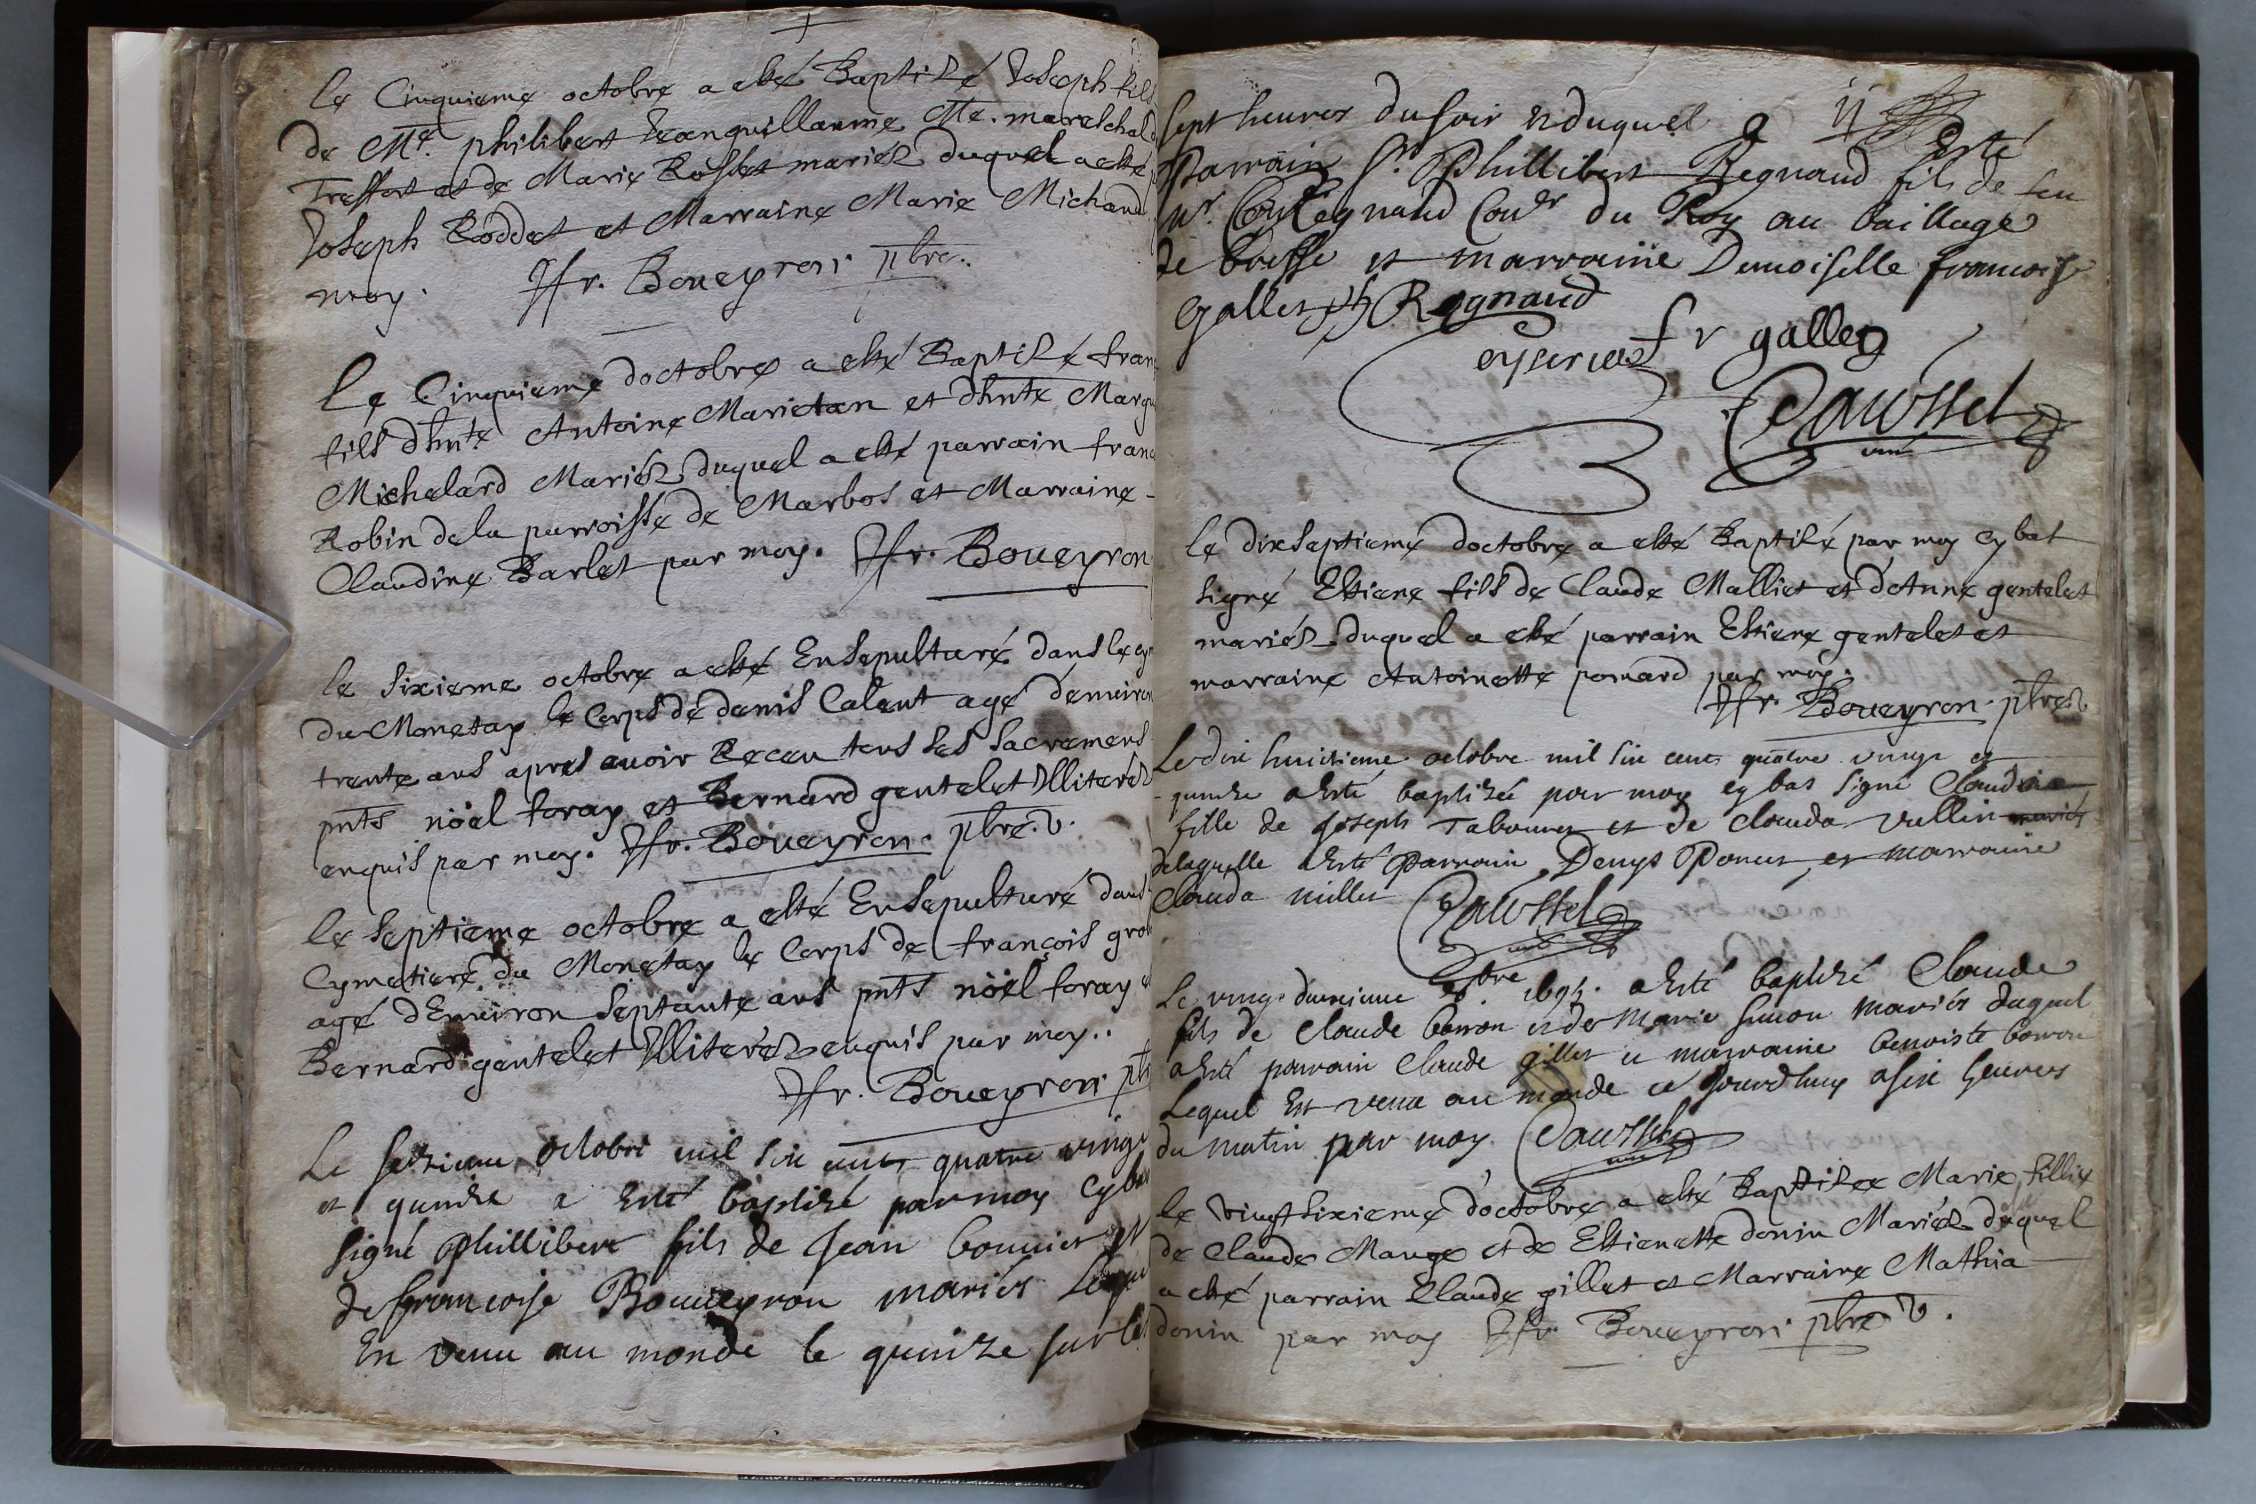 le Cinquieme octobre a esté Baptisé Joseph fils
de Mre. philibert Jeanguillaume Me. mareschal
Treffort et de Marie Rosset mariés duquel a esté
Joseph Roddet et Marraine Marie Michaud
moy. Ffr. Boueyron pbre.
Le Cinquieme doctobre a esté Baptisé
fils dhnte Antoine Marietan et dhnte
Michelard Mariés duquel a esté parrain
Robin de la parroisse de Marbos et Marraine
Claudine Barlet par moy. Ffr. Boueyron
le sixieme octobre a esté Ensepulturé dans le
du Monetay le Corps de denis Calant agé denuiron
trente ans apres auoir Receu tous ses sacremens
pnts nöel foray et Bernard gentelet Illiterés
enquis par moy. Ffr. Boueyron. pbre. v.
le septieme octobre a esté Ensepulturé dans
Cymetiere du Monetay le Corps de françois
agé dEnuiron septante ans pnts nöel foray
Bernard gentelet Illiterés enquis par moy.
Ffr. Boueyron
Le seizieme octobre mil six cent quatre vingt
et quinze a esté baptizé par moy Cybas
signé Phillibert fils de Jean bonnier et
de francoise Boueyron mariés Lequel
En venu au monde le quinze sur les
sept heures du soir et duquel a esté
Parrain Sr. Phillibert Regnaud fils de feu
Mr. Regnaud Coner du Roy au baillage
de bresse et marraine Demoiselle francoise
gallet Regnaud
fr gallet
Paussel
curé
le dixseptieme doctobre a esté Baptisé par moy cybat
signé Estiene fils de Claude Malliet et d'Anne gentelet
mariés duquel a esté parrain Estiene gentelet et
marraine Antoinette pomard par moy.
Ffr. Boueyron. pbre. v.
Le dix huictieme octobre mil six cent quatre vingt et
quinze a esté baptizée par moy cybas signé Claudine
fille de Joseph Tabouret et de Clauda Vullin mariés
delaquelle a esté Parrain Denys Poncet et marraine
Clauda millet Paussel
curé
Le vingt deuxieme 8bre 1695. a esté baptizé Claude
fils de Claude borron et de Marie simon mariés duquel
a esté parrain Claude gillet et marraine benoiste borron
Lequel Est venu au monde ce Jourdhuy a six heures
du matin par moy Paussel
curé
le vingtsixieme doctobre a esté Baptisee Marie fillie
de Claude Mange et de Estienette donin Mariés duquel
a esté parrain Claude gillet et Marraine Mathia
donin par moy Ffr. Boueyron pbre. v.